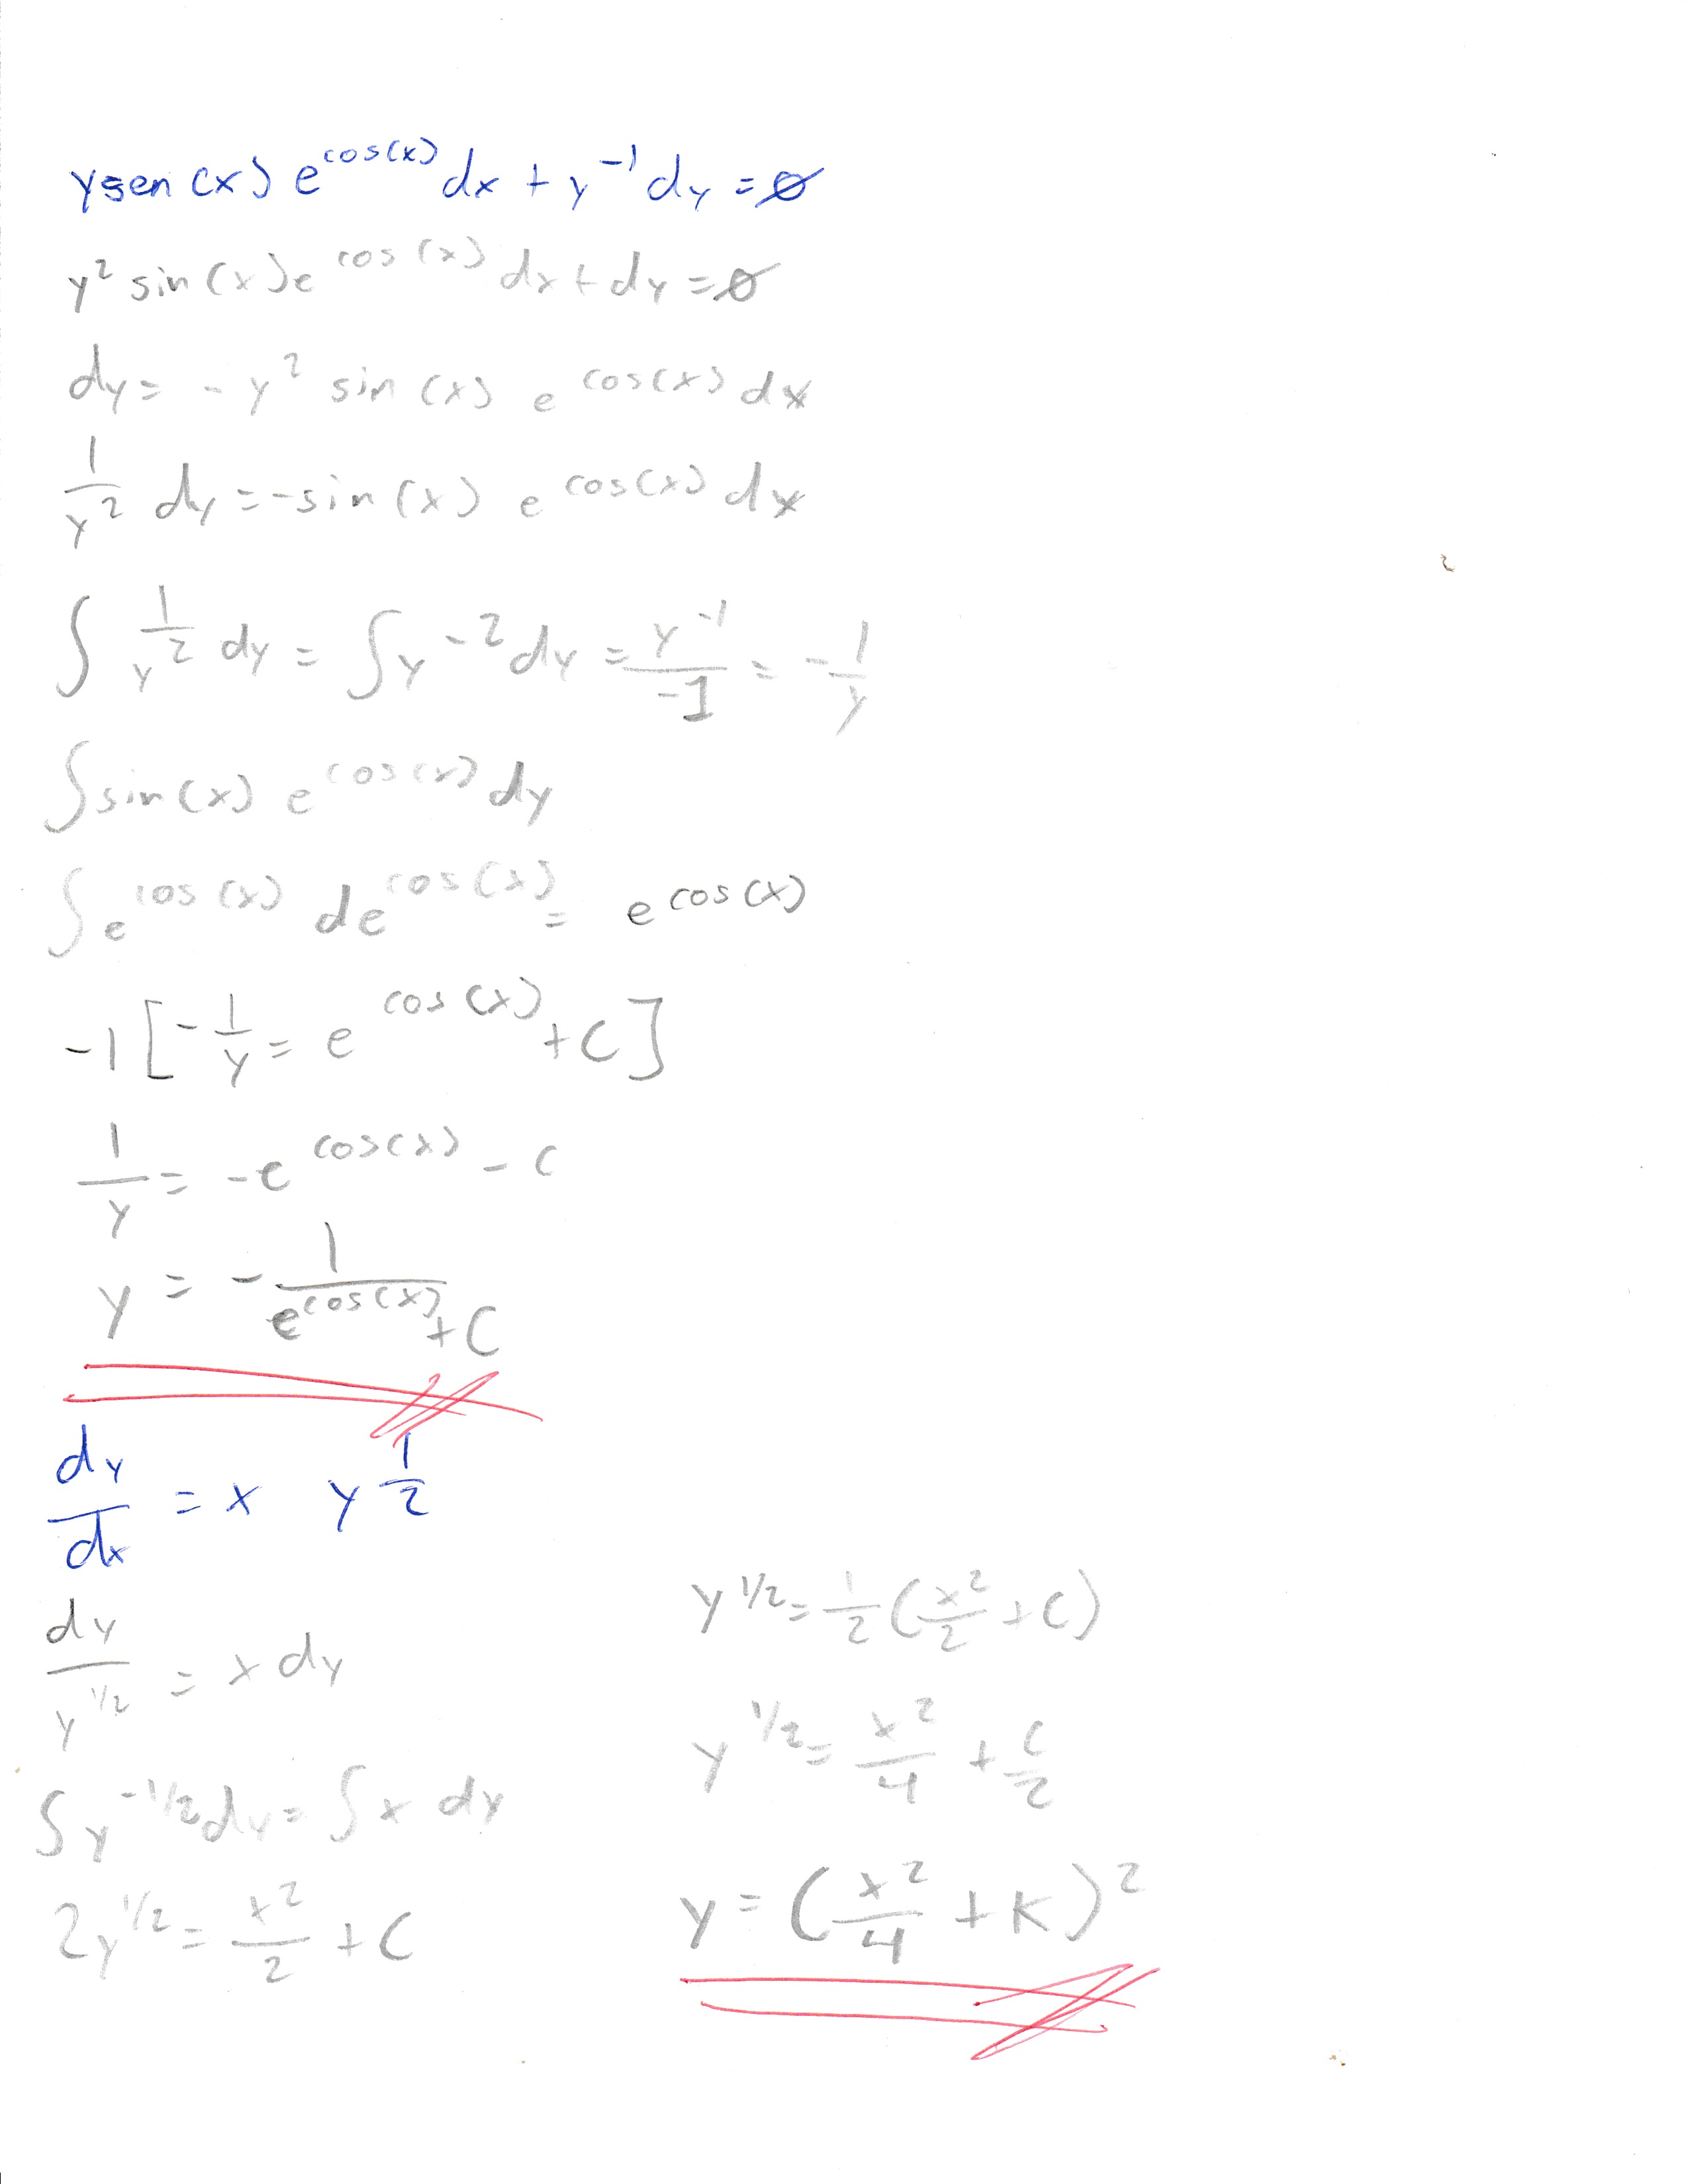 ysen(x) e^cos(x) dx + y^-1 dy = ∅
y^2 sin(x)e^cos(x) dx + dy = ∅
dy = - y^2 sin(x) e^cos(x) dx
1/y^2 dy = -sin(x) e^cos(x) dx
∫ 1/y^2 dy = ∫ y^-2 dy = y^-1/-1 = - 1/y
∫ sin(x) e^cos(x) dy
∫ e^cos(x) de^cos(x) = e^cos(x)
-1 [ - 1/y = e^cos(x) + C ]
1/y = -e^cos(x) - c
y = - 1/(e^cos(x) + C)
dy/dx = x y^1/2
dy/y^1/2 = x dy
∫ y^-1/2 dy = ∫ x dy
2y^1/2 = x^2/2 + C
y^1/2 = 1/2 (x^2/2 + C)
y^1/2 = x^2/4 + C/2
y = (x^2/4 + K)^2